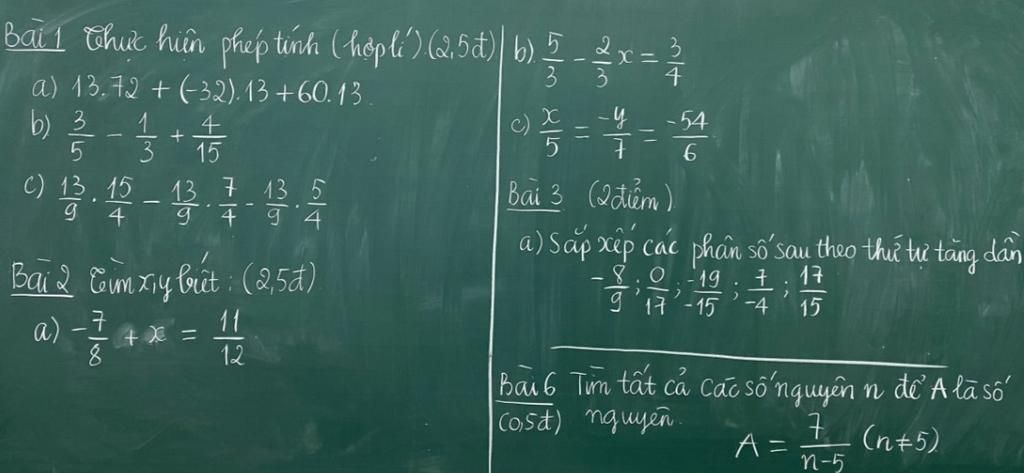 Bài 1 Thực hiện phép tính (hợp lí) (2,5đ)
a) 13.72 + (-32).13 + 60.13
b) 3/5 - 1/3 + 4/15
c) 13/9 . 15/4 - 13/9 . 7/4 - 13/9 . 5/4
Bài 2 Tìm x,y biết : (2,5đ)
a) -7/8 + x = 11/12
b) 5/3 - 2/3 x = 3/4
c) x/5 = -y/7 = -54/6
Bài 3 (2điểm)
a) Sắp xếp các phân số sau theo thứ tự tăng dần
-8/9 ; 0/17 ; -19/-15 ; 7/-4 ; 17/15
Bài 6 Tìm tất cả các số nguyên n để A là số
(0,5đ) nguyên.
A = 7/n-5 (n≠5)